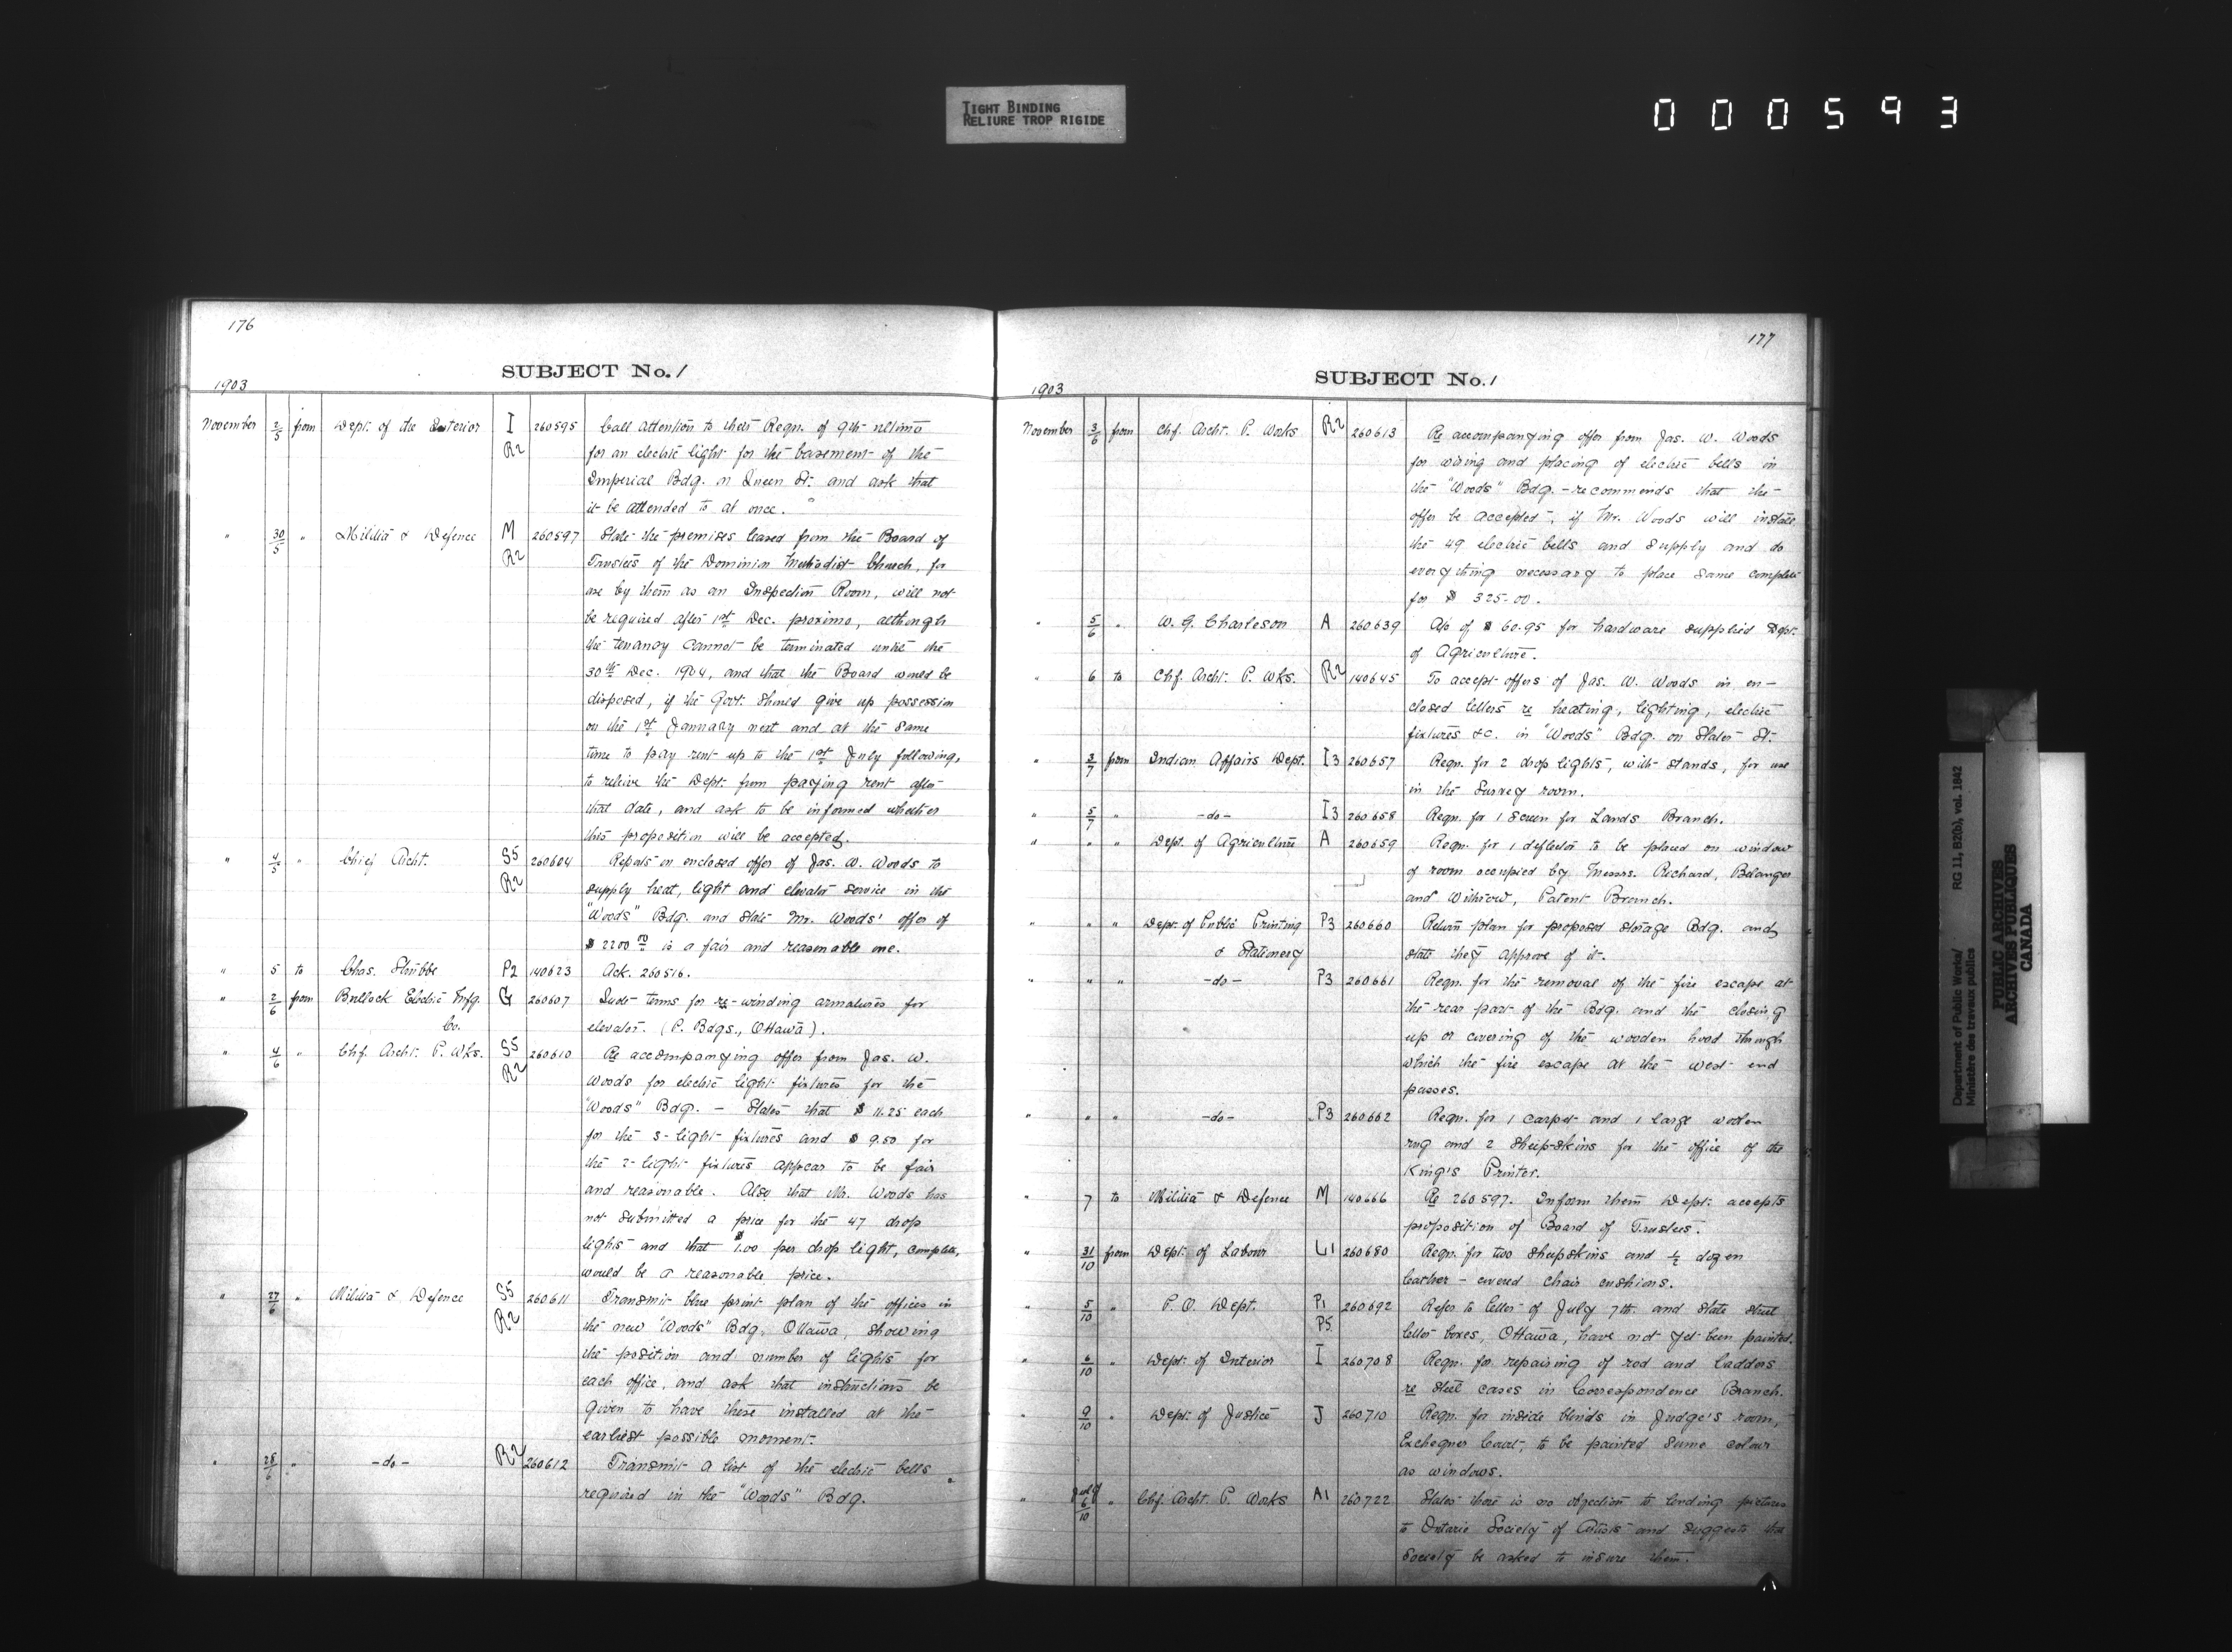 TIGHT BINDING
RELIURE TROP RIGIDE
000593
176
SUBJECT No. 1
1903
November 2/5 from Dept. of the Interior I 260595 Call attention to their Reqn. of 9th ultimo
R2 for an electric light for the basement of the
Imperial Bdg. on Queen St. and ask that
it be attended to at once.
" 30/5 " Militia & Defence M 260597 State the premises leased from the Board of
R2 Trustees of the Dominion Methodist Church, for
use by them as an Inspection Room, will not
be required after 1st Dec. proximo, although
the tenancy cannot be terminated until the
30th Dec. 1904, and that the Board would be
disposed, if the Govt. should give up possession
on the 1st January next and at the same
time to pay rent up to the 1st July following,
to relieve the Dept. from paying rent after
that date, and ask to be informed whether
this proposition will be accepted.
" 4/5 " Chief Archt. S5 260604 Reports on enclosed offer of Jas. W. Woods to
R2 supply heat, light and elevator service in the
"Woods" Bdg. and state Mr. Woods' offer of
$2200 00 is a fair and reasonable one.
" 5 to Chas. Stubbe P2 140623 Ack. 260516.
" 2/6 from Bullock Electric Mfg. G 260607 Quote terms for re-winding armatures for
Co. elevator. (P. Bdgs., Ottawa).
" 4/6 " Chf. Archt. P. Wks. S5 260610 Re accompanying offer from Jas. W.
R2 Woods for electric light fixtures for the
"Woods" Bdg. — States that $11.25 each
for the 3-light fixtures and $9.50 for
the 2-light fixtures appear to be fair
and reasonable. Also that Mr. Woods has
not submitted a price for the 47 drop
lights and that $1.00 per drop light, complete,
would be a reasonable price.
" 27/6 " Militia & Defence S5 260611 Transmit blue print plan of the offices in
R2 the new "Woods" Bdg, Ottawa, showing
the position and number of lights for
each office, and ask that instructions be
given to have these installed at the
earliest possible moment.
" 28/6 " -do- R2 260612 Transmit a list of the electric bells
required in the "Woods" Bdg.
177
SUBJECT No. 1
1903
November 3/6 from Chf. Archt. P. Works R2 260613 Re accompanying offer from Jas. W. Woods
for wiring and placing of electric bells in
the "Woods" Bdg. - recommends that the
offer be accepted, if Mr. Woods will install
the 49 electric bells and supply and do
everything necessary to place same complete
for $325.00.
" 5/6 " W. G. Charleson A 260639 A/c of $60.95 for hardware supplied Dept.
of Agriculture.
" 6 to Chf. Archt. P. Wks. R2 140645 To accept offers of Jas. W. Woods in en-
closed letters re heating, lighting, electric
fixtures &c. in "Woods" Bdg. on Slater St.
" 3/7 from Indian Affairs Dept. I3 260657 Reqn. for 2 drop lights, with stands, for use
in the Survey room.
" 5/7 " -do- I3 260658 Reqn. for 1 screen for Lands Branch.
" " " Dept. of Agriculture A 260659 Reqn. for 1 deflector to be placed on window
of room occupied by Messrs. Richard, Belanger
and Withrow, Patent Branch.
" " " Dept. of Public Printing P3 260660 Return plan for proposed storage Bdg. and
& Stationery state they approve of it.
" " " -do- P3 260661 Reqn. for the removal of the fire escape at
the rear part of the Bdg. and the closing
up or covering of the wooden hood through
which the fire escape at the west end
passes.
" " " -do- P3 260662 Reqn. for 1 carpet and 1 large woolen
rug and 2 sheep-skins for the office of the
King's Printer.
" 7 to Militia & Defence M 140666 Re 260597. Inform them Dept. accepts
proposition of Board of Trustees.
" 31/10 from Dept. of Labour L1 260680 Reqn. for two sheepskins and 1/2 dozen
leather-covered chair cushions.
" 5/10 " P. O. Dept. P1 260692 Refer to letter of July 7th and state street
P5 letter boxes, Ottawa, have not yet been painted.
" 6/10 " Dept. of Interior I 260708 Reqn. for repairing of rod and ladders
re steel cases in Correspondence Branch.
" 9/10 " Dept. of Justice J 260710 Reqn. for inside blinds in Judge's room,
Exchequer Court, to be painted same colour
as windows.
" July 6/10 " Chf. Archt. P. Works A1 260722 States there is no objection to lending pictures
to Ontario Society of Artists and suggests the
Society be asked to insure them.
Department of Public Works/ RG 11, B2(b), vol. 1842
Ministère des travaux publics
PUBLIC ARCHIVES
ARCHIVES PUBLIQUES
CANADA